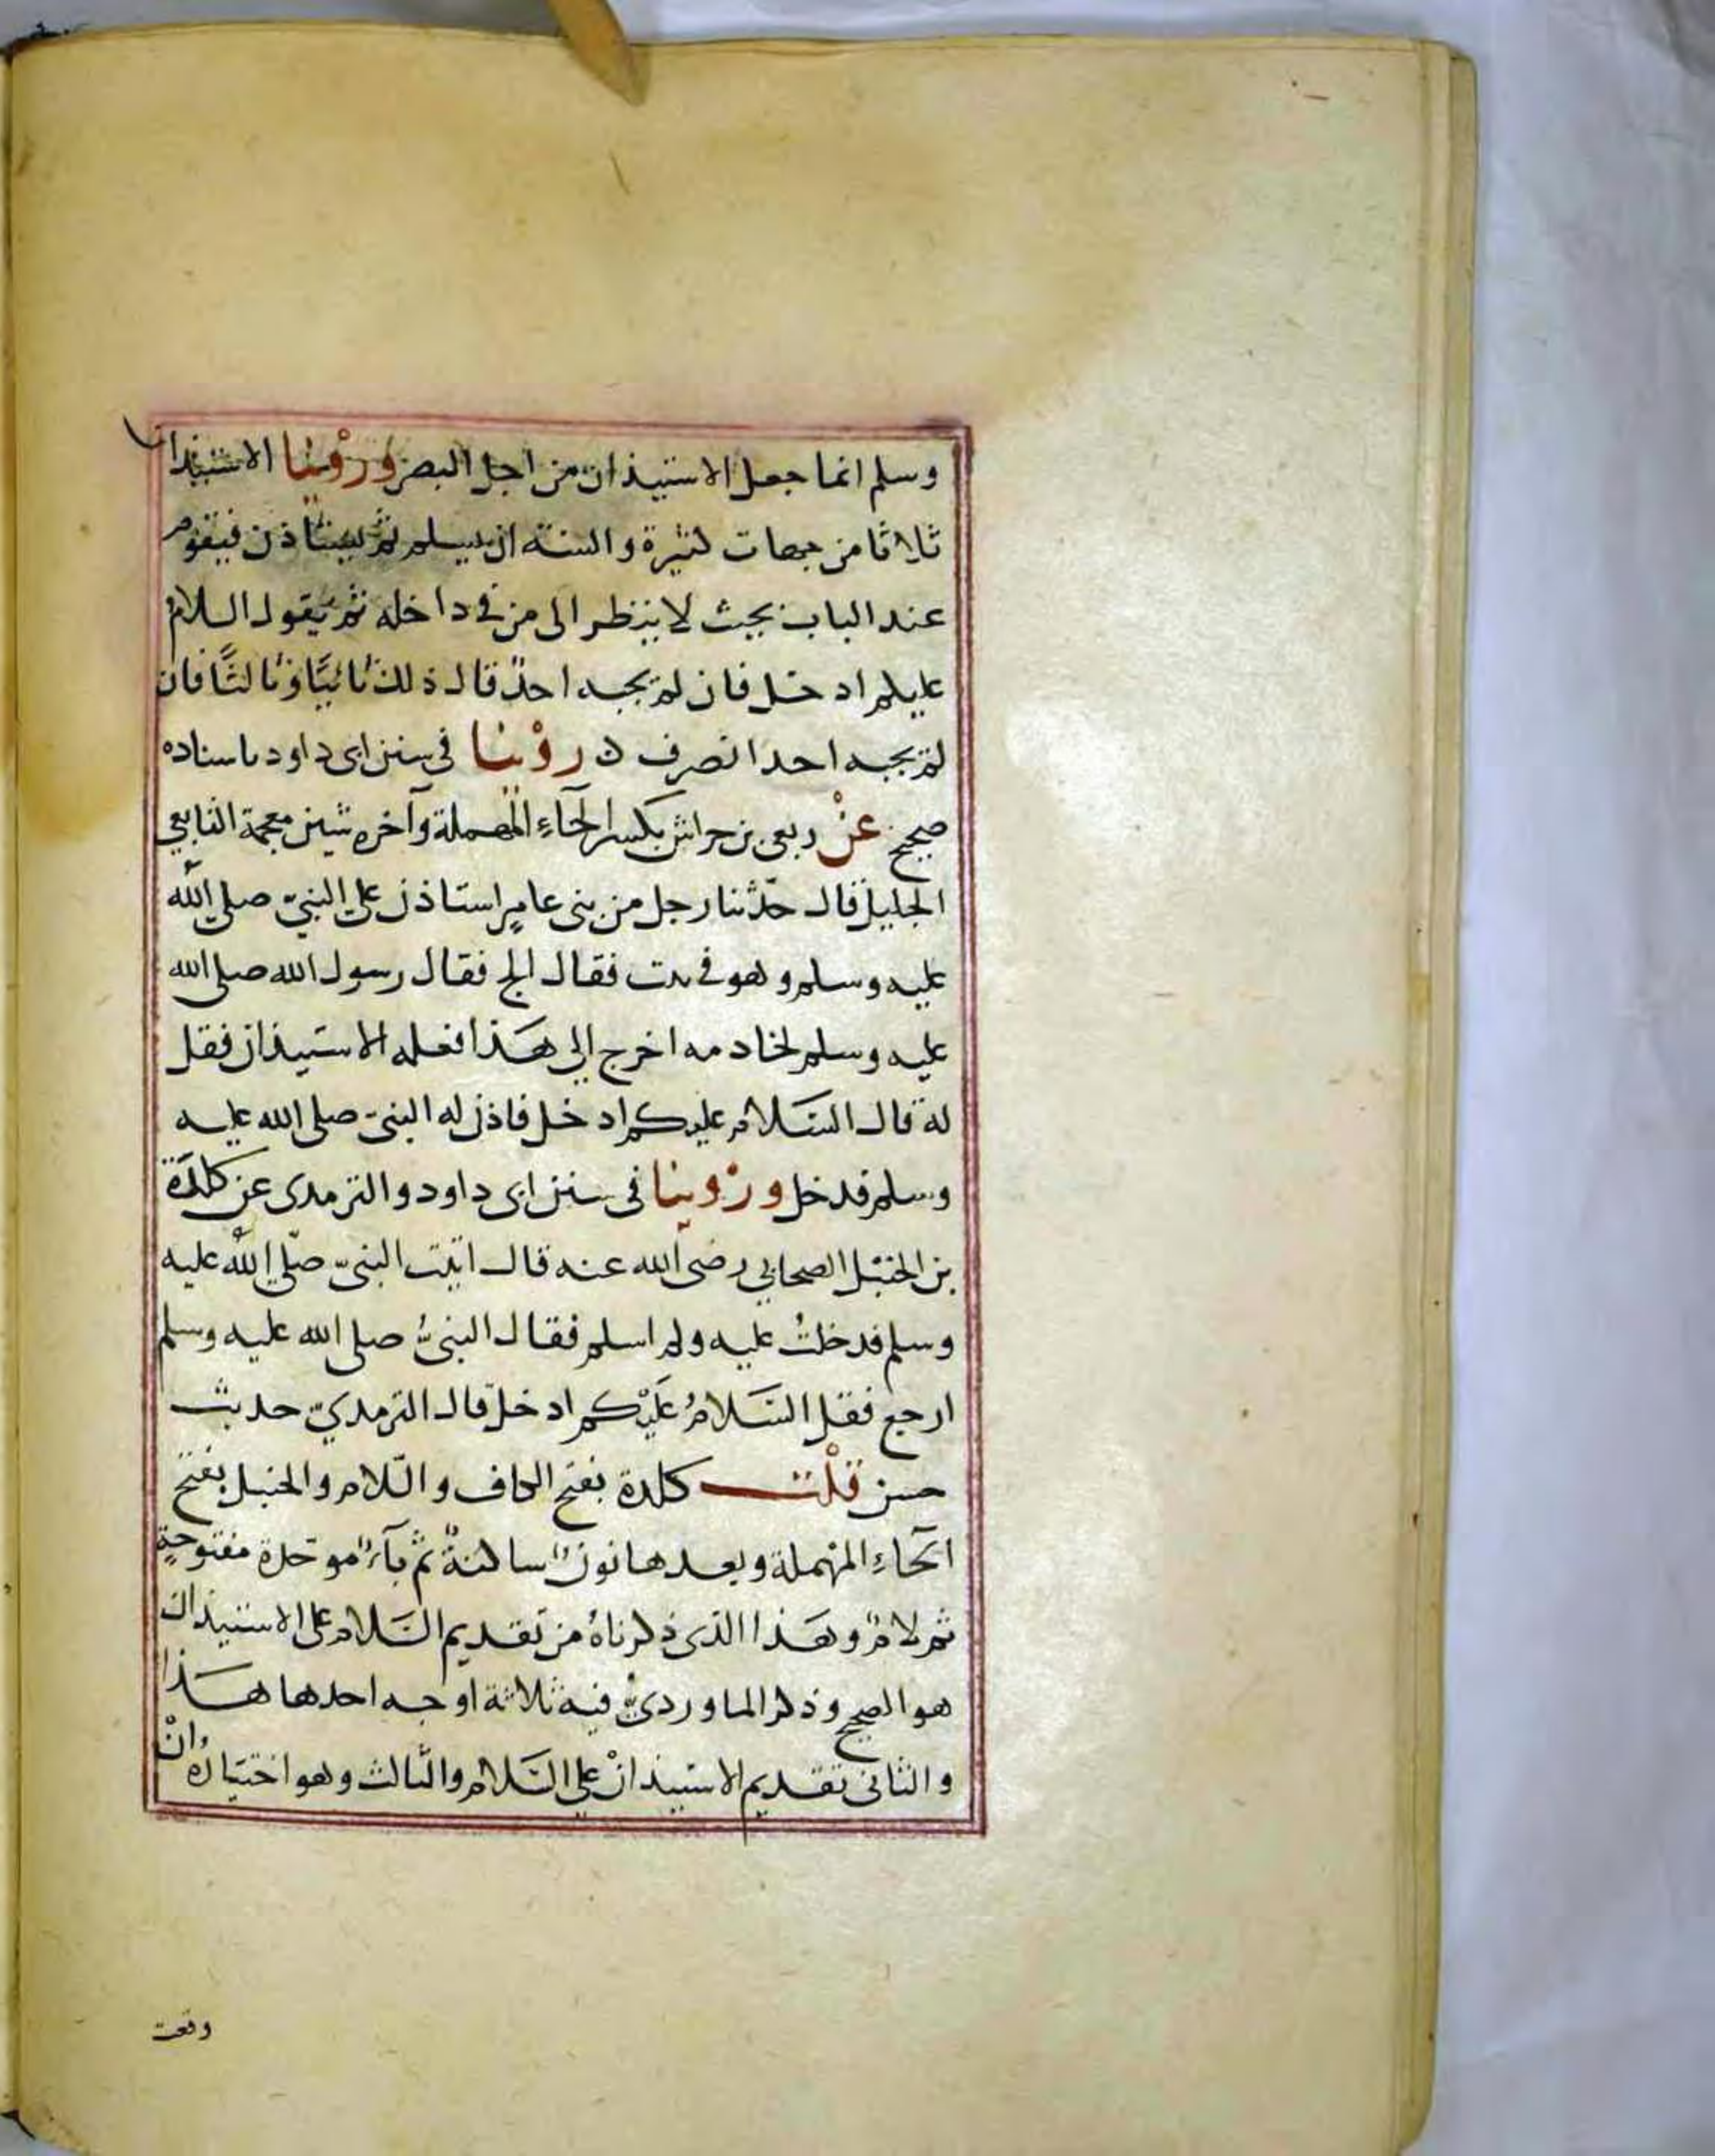 وسلم انما جعل الاستيذان من اجل البصر وروينا الاستيذان
ثلاثا من جهات كثيرة والسنة ان يسلم ثم يستاذن فيقوم
عند الباب بحيث لا ينظر الى من في داخله ثم يقول السلام
عليكم ادخل فان لم يجبه احدٌ قال ذلك ثانيًا وثالثًا فان
لم يجبه احد انصرف روينا في سنن ابى داود باسناده
صحيح عن ربعى بن حراش بكسر الحآءِ المهملة وآخره شين معجمة التابعي
الجليل قال حدّثنا رجل من بنى عامرٍ استاذن على النبيّ صلى الله
عليه وسلم وهو في بيت فقال الج فقال رسول الله صلى الله
عليه وسلم لخادمه اخرج الى هذا فعلمه الاستيذان فقل
له قال السَلام عليكم ادخل فاذن له النبيّ صلى الله عليه
وسلم فدخل وروينا فى سنن ابى داود والترمدى عن كَلَدَة
بن الحَنبَل الصحابي رضى الله عنه قال اتيت النبيّ صلّى الله عليه
وسلم فدخلتُ عليه ولم اسلم فقال النبىُّ صلى الله عليه وسلم
ارجع فقل السَلامُ عَلَيْكم ادخل قال الترمديّ حديث
حسن قلْت كلدة بفتح الكاف واللّام والحنبل بفتح
الحآءِ المهملة وبعدها نونٌ ساكنةٌ ثم بآءٌ موحّدة مفتوحةٍ
ثم لامٌ وهَذا الذى ذكرناهُ من تقديم السَلام على الاستيذان
هو الصحيح وذكر الماوردىُّ فيه ثلاثة اوجه احدها هَذا
والثانى تقديم الاستيذانْ على السَلام والثالث وهو اختيَارُهُ انْ
وقعت